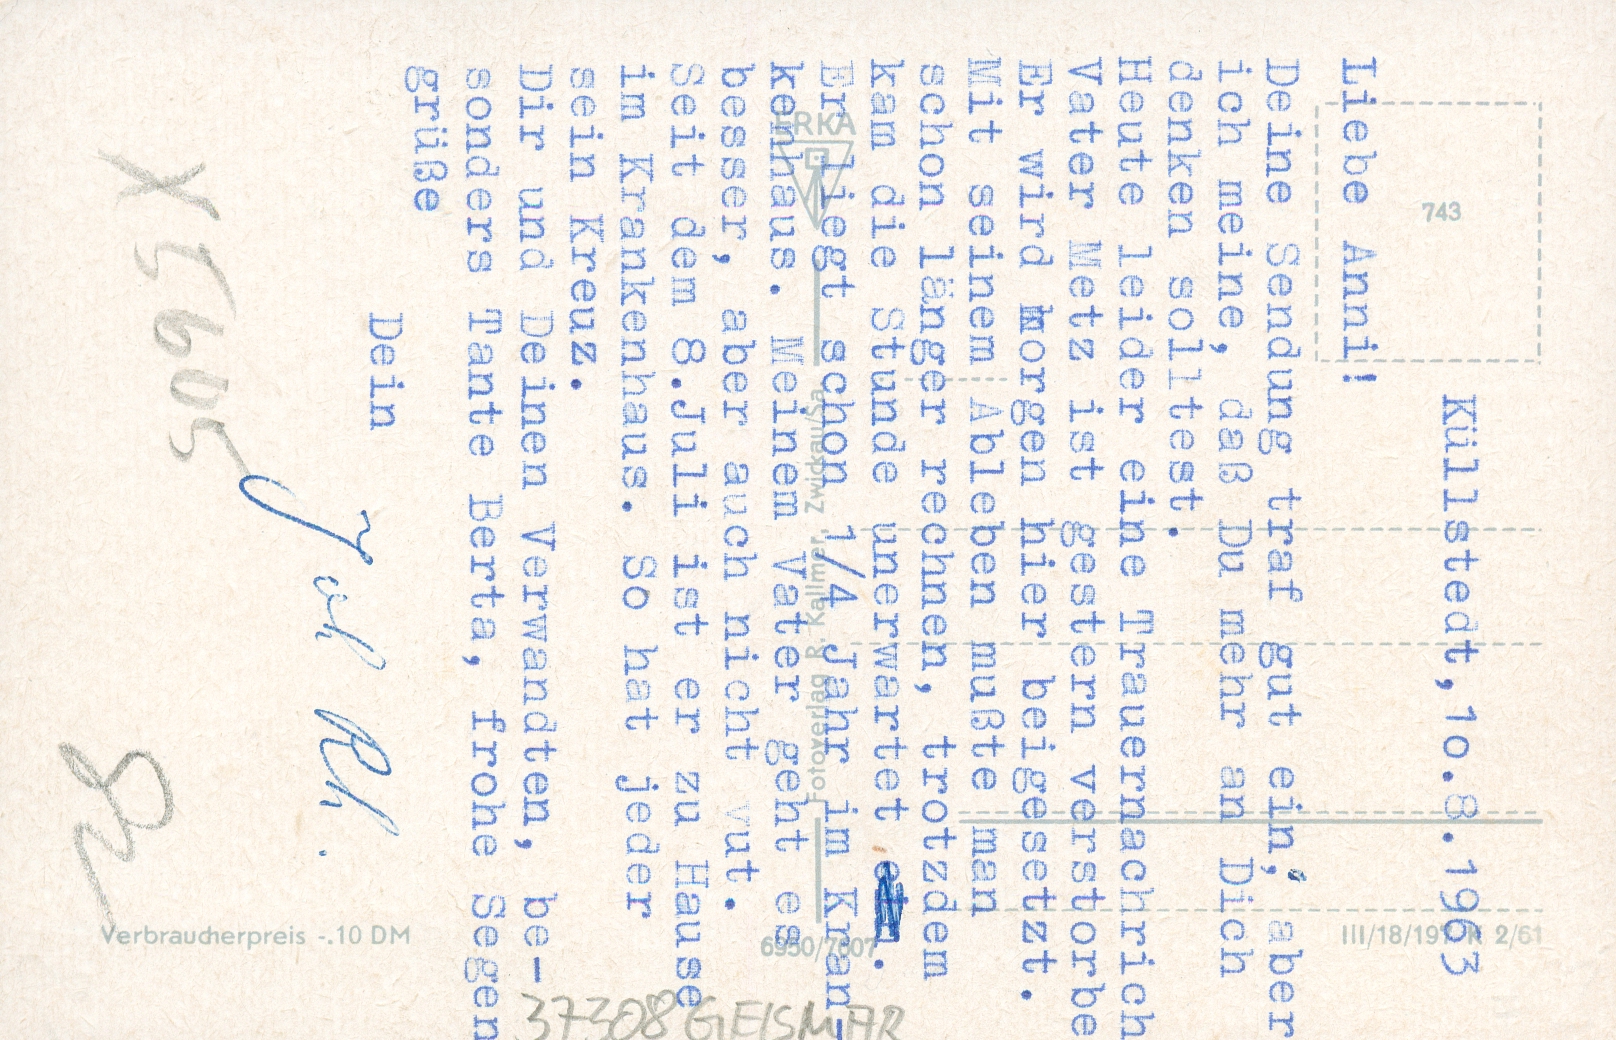 Küllstedt,1o.8.1963
Liebe Anni!
Deine Sendung traf gut ein; aber
ich meine, daß Du mehr an Dich
denken solltest.
Heute leider eine Trauernachrich
Vater Metz ist gestern verstorbe
Er wird morgen hier beigesetzt.
Mit seinem Ableben mußte man
schon länger rechnen, trotzdem
kam die Stunde unerwartet.
Er liegt schon 1/4 Jahr im Kran-
kenhaus. Meinem Vater geht es
besser, aber auch nicht vut.
Seit dem 8.Juli ist er zu Hause
im Krankenhaus. So hat jeder
sein Kreuz.
Dir und Deinen Verwandten, be-
sonders Tante Berta, frohe Segen
grüße
Dein
743
ERKA
Fotoverlag R. Kallmer, Zwickau/Sa.
6950/7607
III/18/197 K 2/61
Verbraucherpreis -.10 DM
37308 GEISMAR